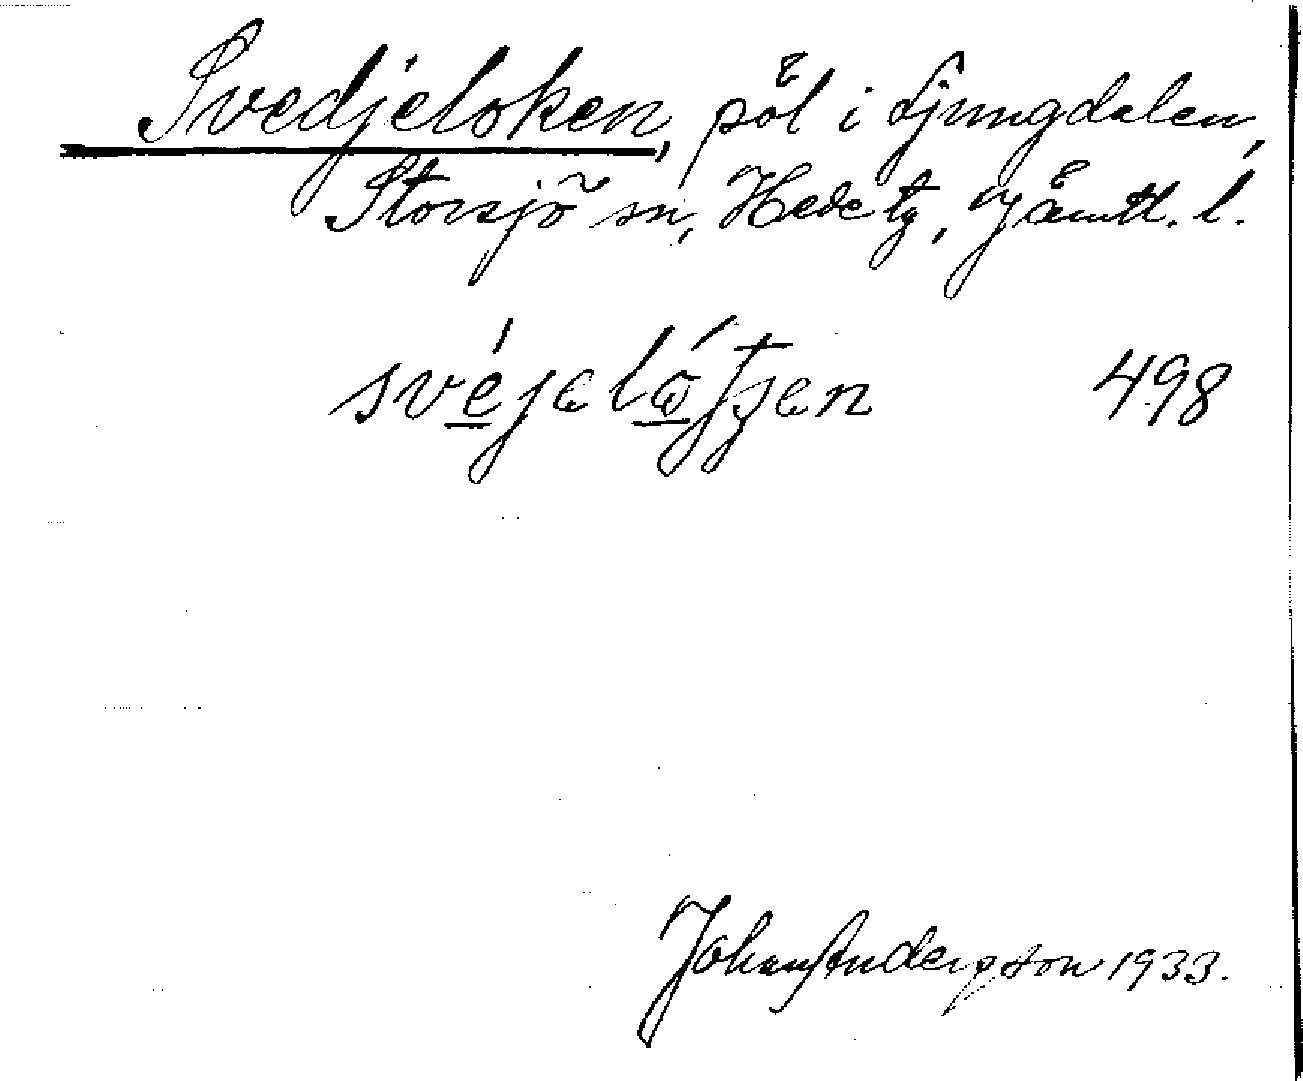 Svedjeloken, pöl i Ljungdalen,
Storsjö sn, Hede tg, Jämtl. l.
498
Johan Andersson 1933.